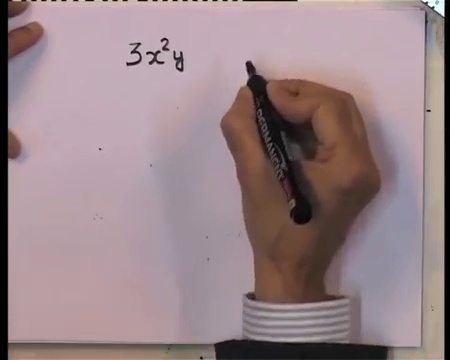 3x²y
PERMANENT